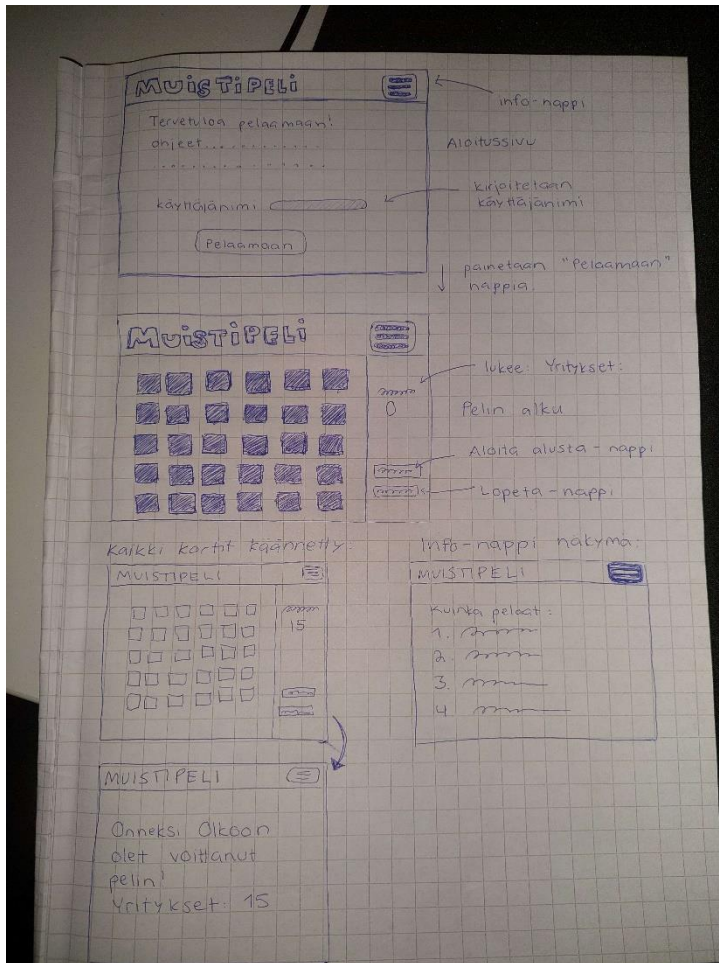 MUISTIPELI
info-nappi
Tervetuloa pelaamaan!
ohjeet...........
Aloitussivu
kirjoitetaan
käyttäjänimi
käyttäjänimi
Pelaamaan
painetaan "Pelaamaan"
nappia.
MUISTIPELI
lukee: Yritykset:
0
Pelin alku
Aloita alusta-nappi
Lopeta-nappi
Kaikki kortit käännetty:
MUISTIPELI
15
Info-nappi näkymä:
MUISTIPELI
Kuinka pelaat:
1.
2.
3.
4
MUISTIPELI
Onneksi Olkoon
olet voittanut
pelin!
Yritykset: 15